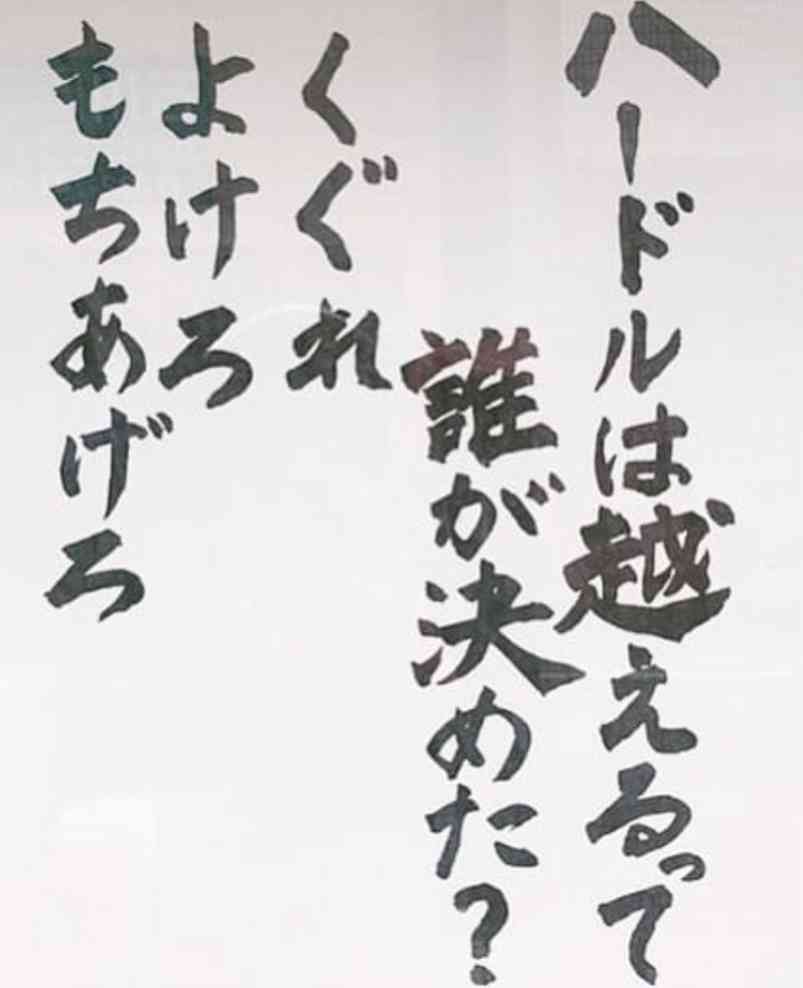 ハードルは越えるって
誰が決めた？
くぐれ
よけろ
もちあげろ